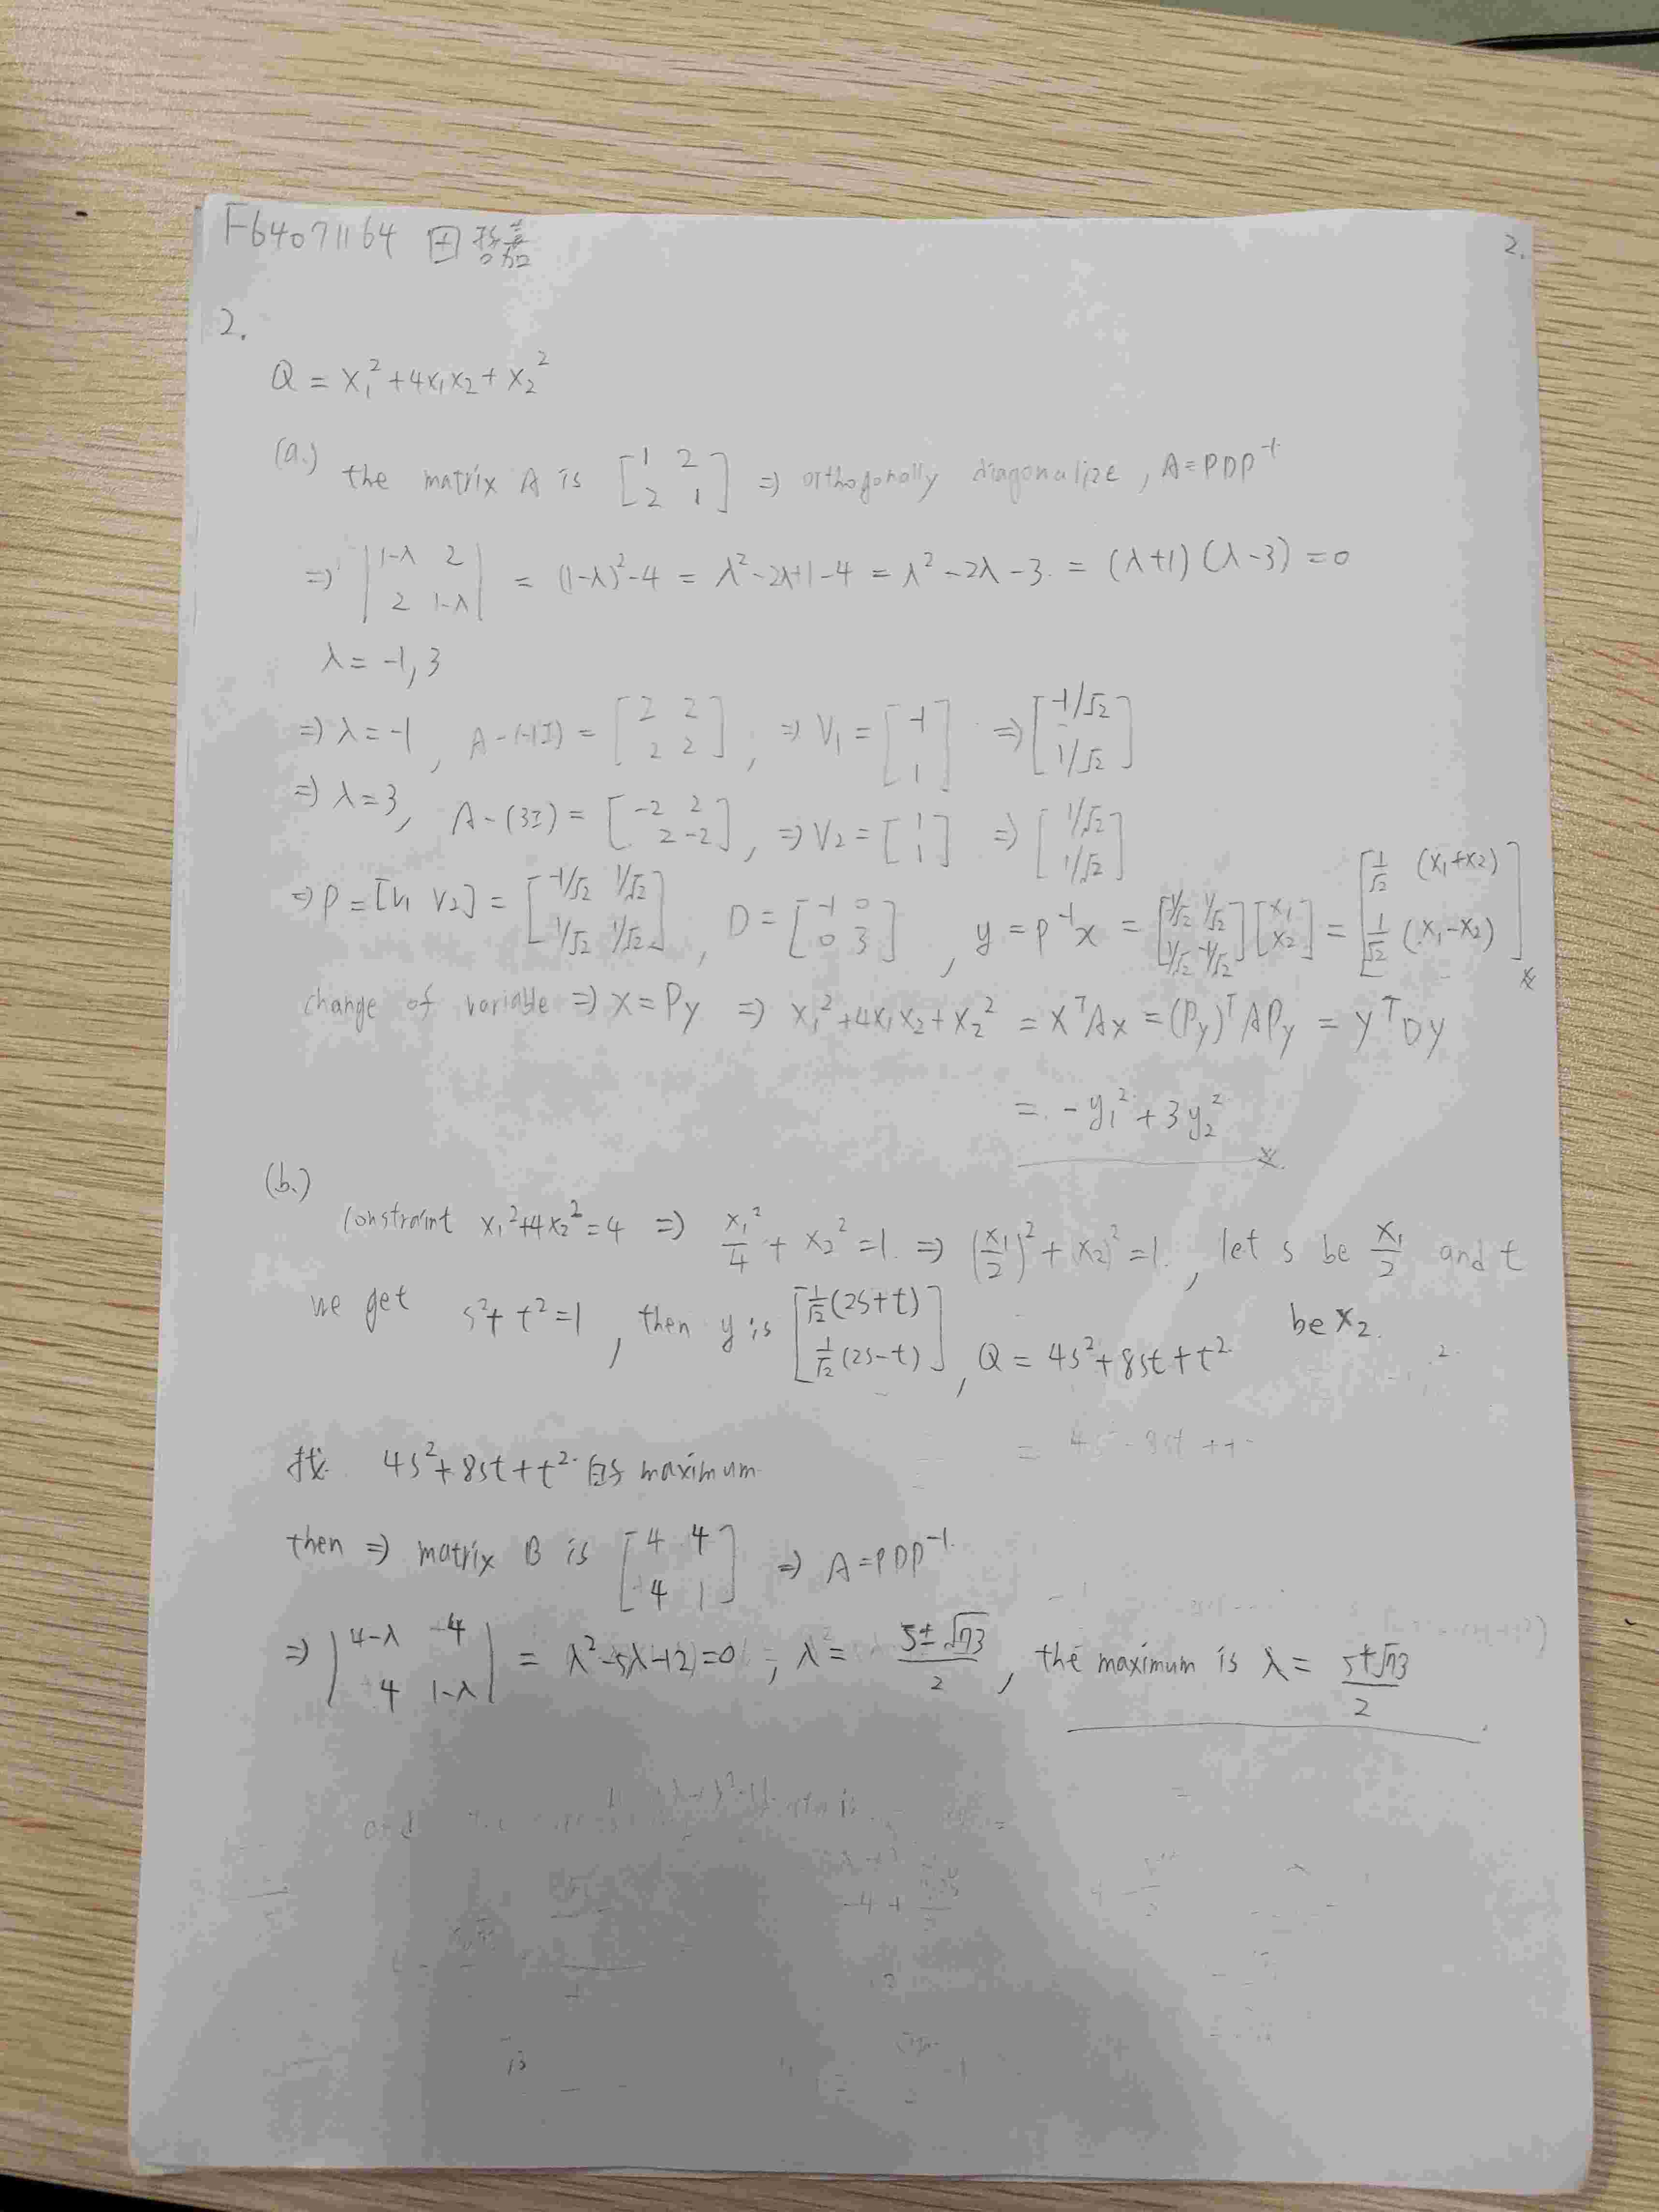 F64071164 田哲嘉
2.
2.
Q = x₁² + 4x₁x₂ + x₂²
(a.) the matrix A is [1 2; 2 1] ⇒ orthogonally diagonalize, A = PDP⁻¹
⇒ |1-λ 2; 2 1-λ| = (1-λ)² - 4 = λ² - 2λ + 1 - 4 = λ² - 2λ - 3 = (λ+1)(λ-3) = 0
λ = -1, 3
⇒ λ = -1, A-(-1I) = [2 2; 2 2], ⇒ V₁ = [-1; 1] ⇒ [-1/√2; 1/√2]
⇒ λ = 3, A-(3I) = [-2 2; 2 -2], ⇒ V₂ = [1; 1] ⇒ [1/√2; 1/√2]
⇒ P = [V₁ V₂] = [-1/√2 1/√2; 1/√2 1/√2], D = [-1 0; 0 3], y = P⁻¹x = [1/√2 1/√2; 1/√2 -1/√2][x₁; x₂] = [1/√2 (x₁+x₂); 1/√2 (x₁-x₂)]
change of variable ⇒ x = Py ⇒ x₁² + 4x₁x₂ + x₂² = xᵀAx = (Py)ᵀAPy = yᵀDy
= -y₁² + 3y₂²
(b.)
constraint x₁² + 4x₂² = 4 ⇒ x₁²/4 + x₂² = 1 ⇒ (x₁/2)² + (x₂)² = 1, let s be x₁/2 and t be x₂.
we get s² + t² = 1, then y is [1/√2 (2s+t); 1/√2 (2s-t)], Q = 4s² + 8st + t²
找 4s² + 8st + t² 的 maximum
then ⇒ matrix B is [4 4; 4 1] ⇒ A = PDP⁻¹
⇒ |4-λ 4; 4 1-λ| = λ² - 5λ - 12 = 0, λ = (5±√73)/2, the maximum is λ = (5+√73)/2